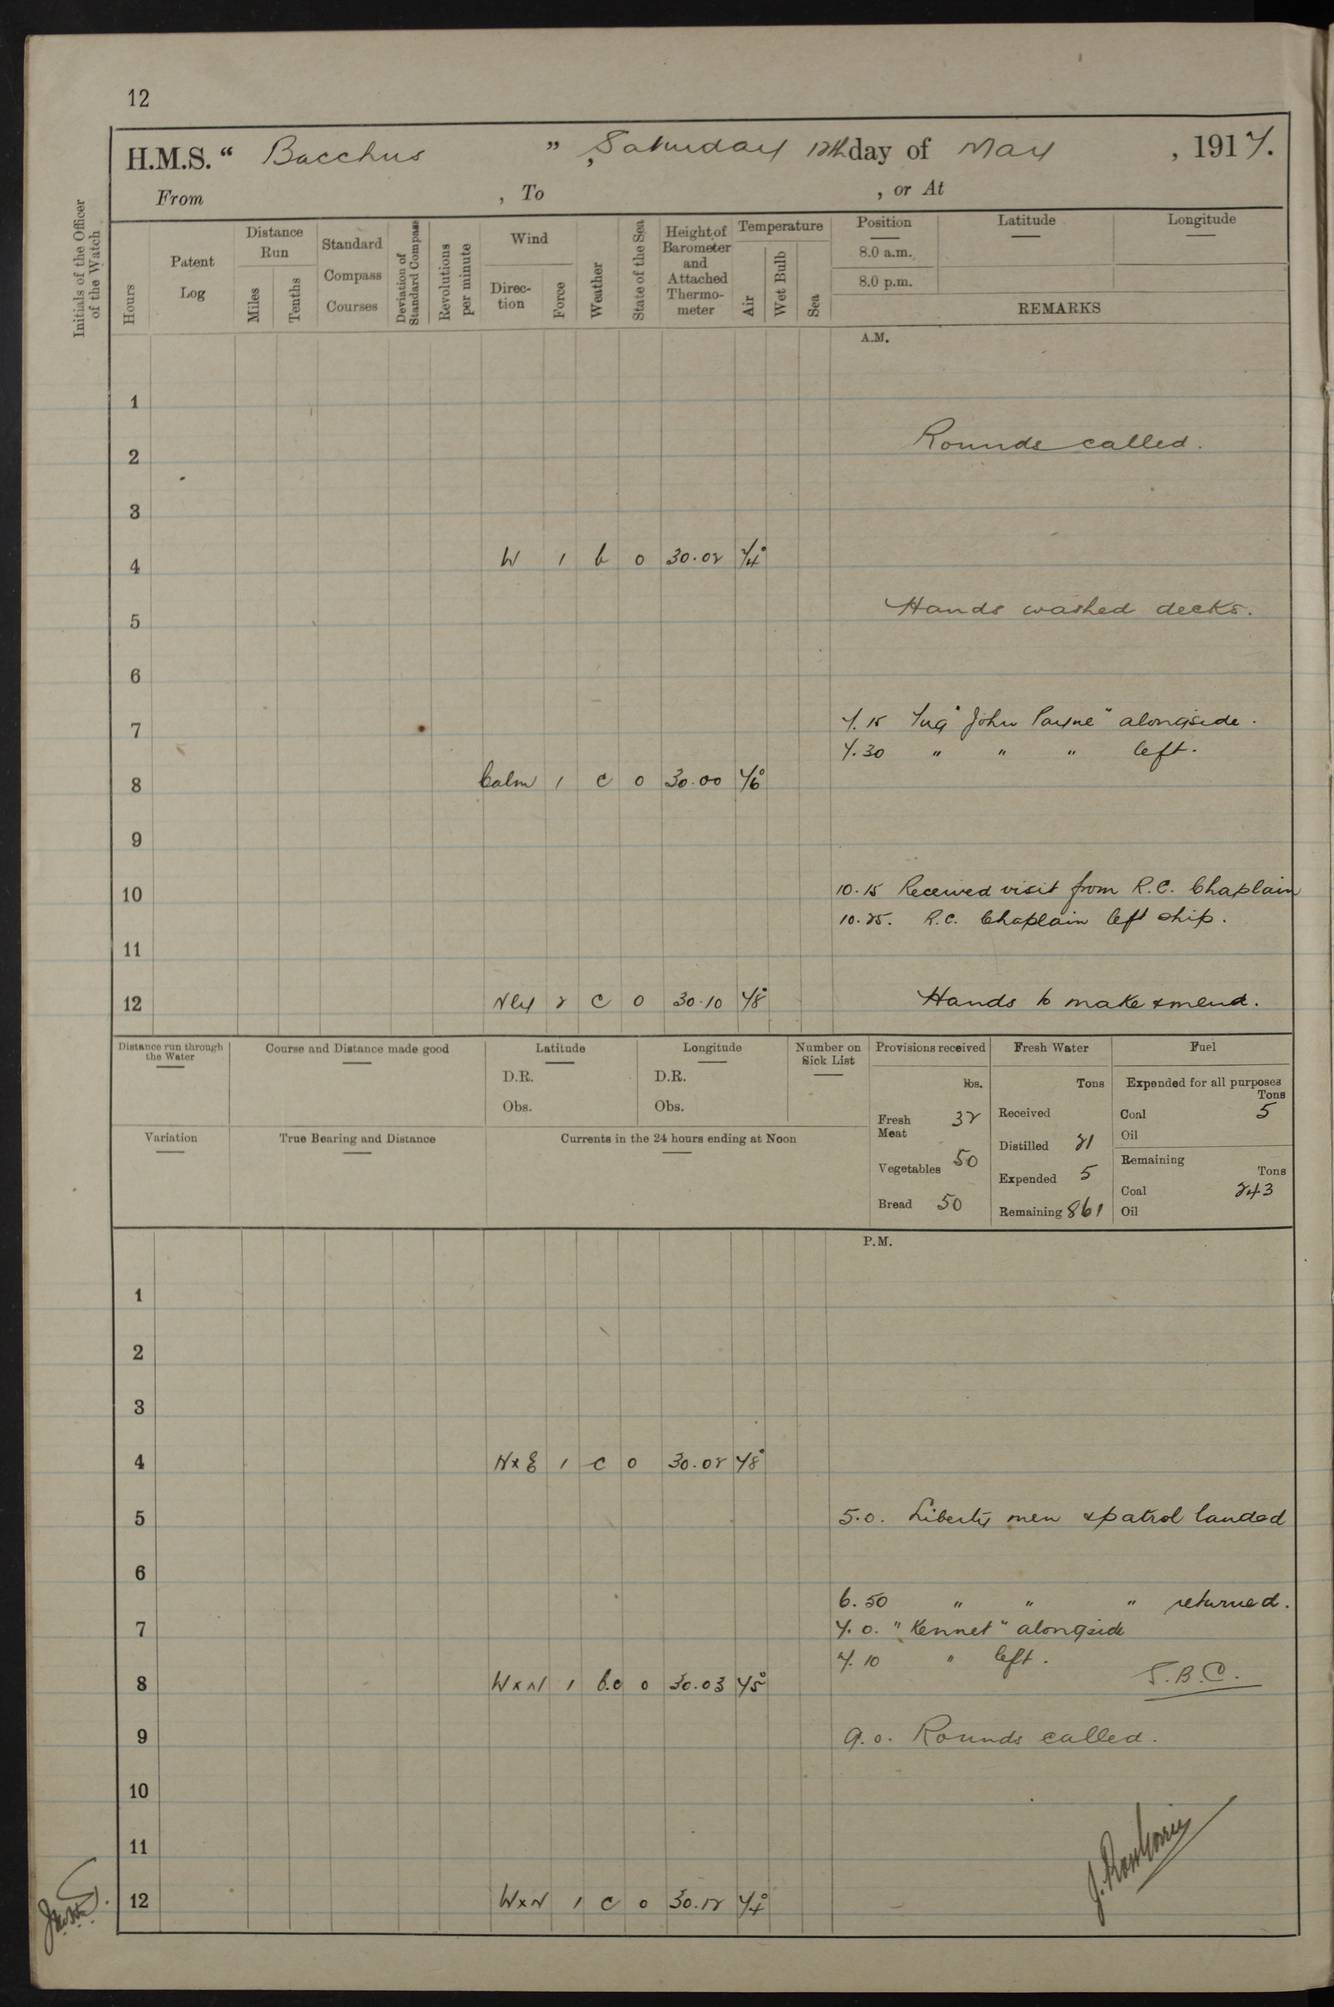 12
H.M.S. “ Bacchus ” , Saturday 12th day of May , 1917.
From , To , or At
Initials of the Officer of the Watch
Hours
Patent Log
Distance Run
Miles
Tenths
Standard Compass Courses
Deviation of Standard Compass
Revolutions per minute
Wind
Direc-tion
Force
Weather
State of the Sea
Height of Barometer and Attached Thermo-meter
Temperature
Air
Wet Bulb
Sea
Position
8.0 a.m.
8.0 p.m.
Latitude
Longitude
REMARKS
A.M.
1
2 Rounds called.
3
4 W 1 b 0 30.02 74°
5 Hands washed decks.
6
7 7.15 Tug "John Payne" alongside.
7.30 " " " left.
8 Calm 1 c 0 30.00 76°
9
10 10.15 Received visit from R.C. Chaplain
10.25. R.C. Chaplain left ship.
11
12 Nly 2 c 0 30.10 78° Hands to make & mend.
Distance run through the Water
Course and Distance made good
Latitude
D.R.
Obs.
Longitude
D.R.
Obs.
Number on Sick List
Variation
True Bearing and Distance
Currents in the 24 hours ending at Noon
Provisions received
lbs.
Fresh Meat 32
Vegetables 50
Bread 50
Fresh Water
Tons
Received
Distilled 21
Expended 5
Remaining 861
Fuel
Expended for all purposes
Tons
Coal 5
Oil
Remaining
Tons
Coal 243
Oil
P.M.
1
2
3
4 N x E 1 c 0 30.02 78°
5 5.0. Liberty men & patrol landed
6
6.50 " " " returned.
7 7.0. "Kennet" alongside
7.10 " left.
8 W x N 1 b.c 0 30.03 75° S.B.C.
9 9.0. Rounds called.
10
11
12 W x N 1 c 0 30.12 74°